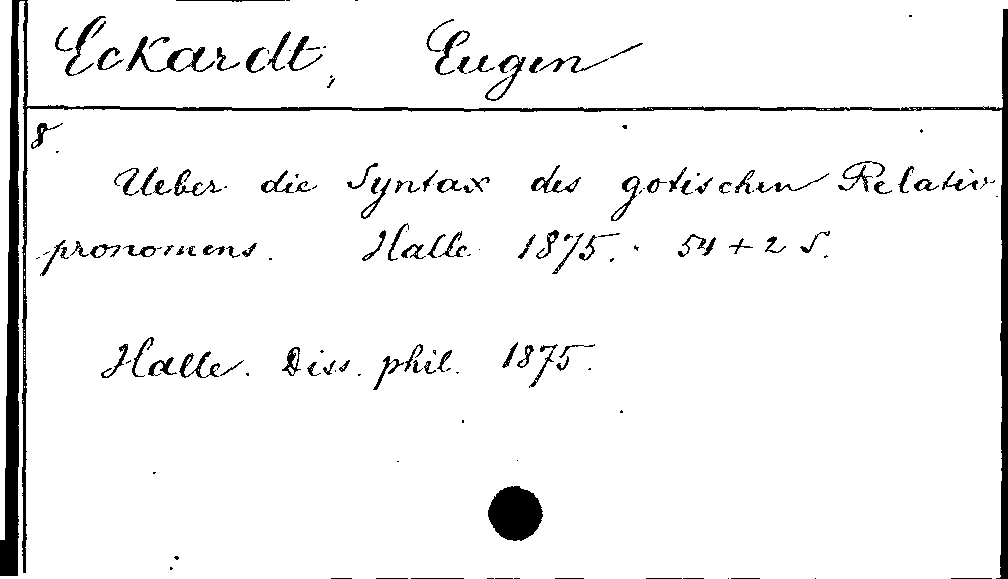 Eckardt, Eugen
8.
Ueber die Syntax des gotischen Relativ
pronomens. Halle 1875. 54 + 2 S.
Halle. Diss. phil. 1875.